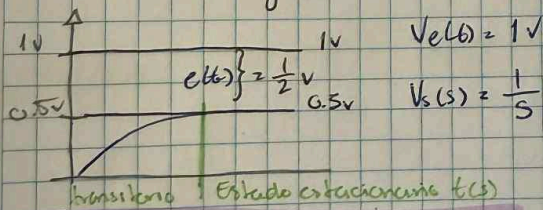 1v 1v Ve(t) = 1V
e(t)} = 1/2 v
0.5v 0.5v Vs(s) = 1/S
transitorio Estado estacionario t(s)